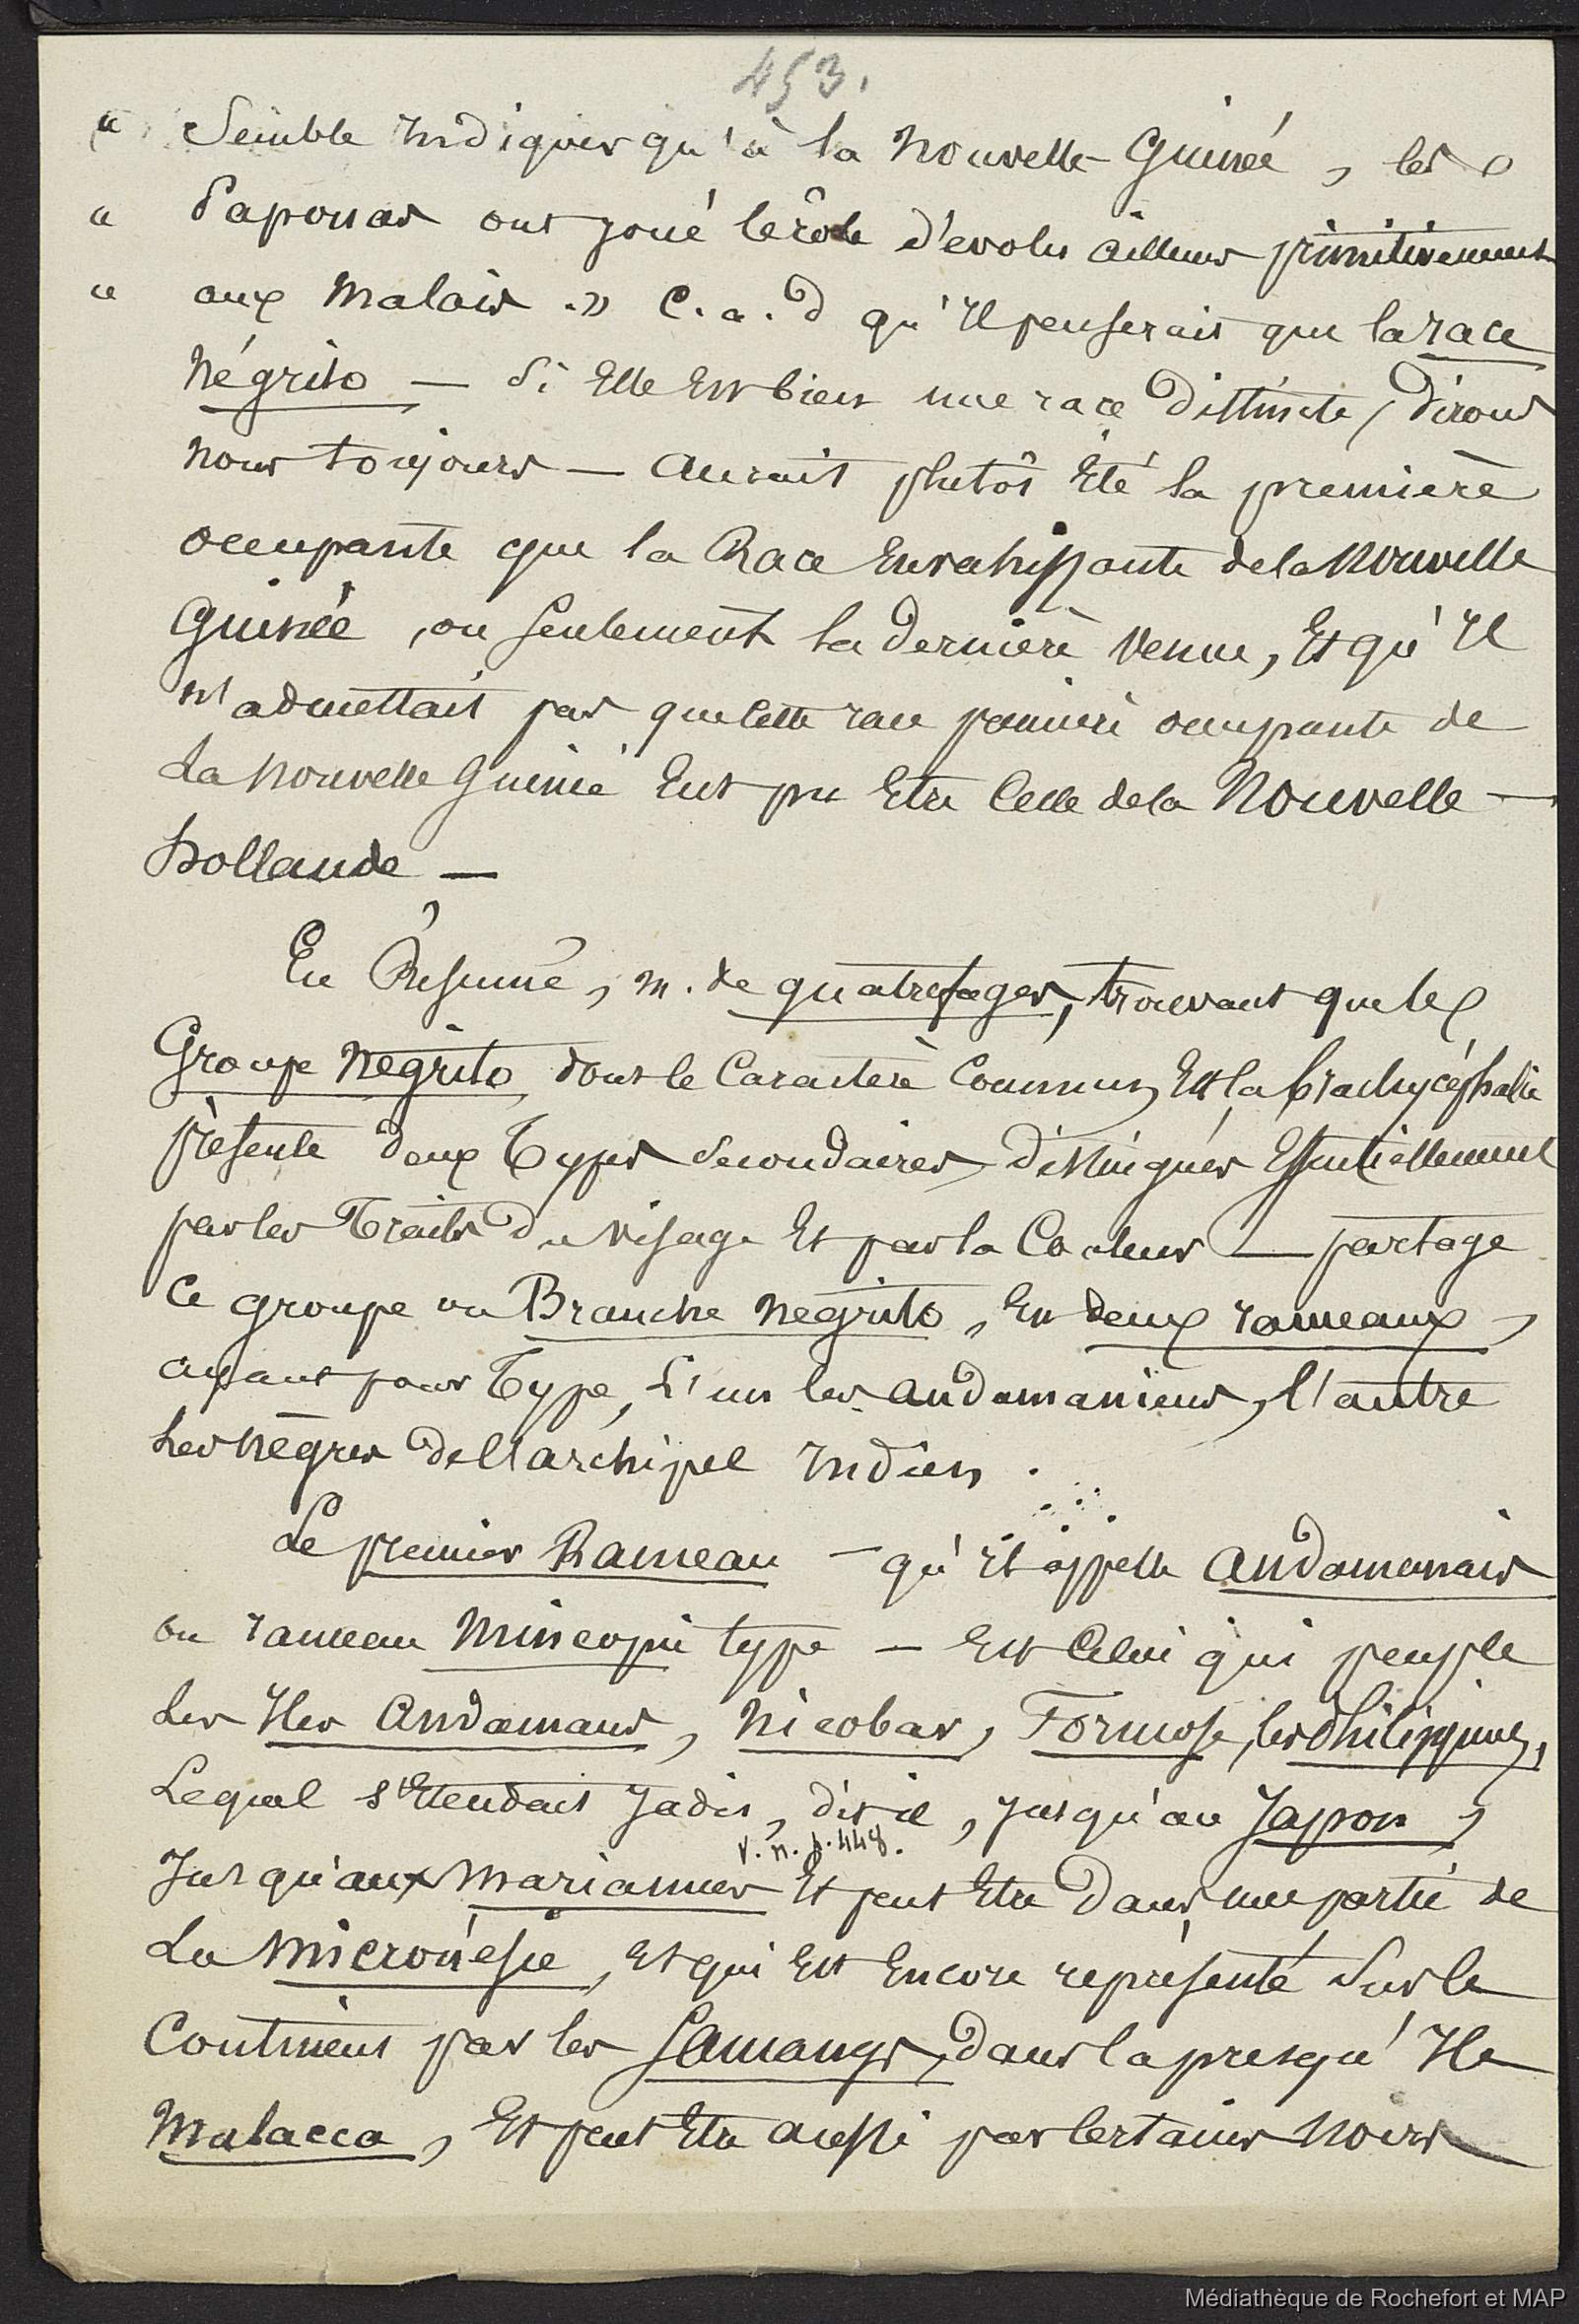 453.
" Semble Indiquer qu'à la Nouvelle-Guinée, les
" Papouas ont joué le rôle d'évolu ailleurs primitivement
" aux Malais ." C.a.d qu'Il penserait que la race
Négrito — Si Elle Est bien une race Distincte, Dirons
Nous toujours — Aurait plutôt Eté la première
occupante que la Race Envahissante de la Nouvelle
Guinée, ou seulement la Dernière Venue, Et qu'Il
n'admettait pas que Cette race première occupante de
La Nouvelle Guinée Eut pu Etre Celle de la Nouvelle —
hollande —
En Résumé, m. de quatrefages, trouvant que le
Groupe Négrito dont le Caractère Commun Est la brachycéphalie
présente deux Types Secondaires, Distingués Essentiellement
par les Traits Du Visage Et par la Couleur — partage
Ce groupe ou Branche Négrito, En deux rameaux,
ayant pour Type, L'un les andamaniens, l'autre
Les nègres de l'archipel Indien.
Le premier Rameau — qu'Il appelle Andamanais
ou rameau Mincopie type — Est Celui qui peuple
Les Iles Andamans, Nicobar, Formose, les Philippines,
Lequel s'Etendait Jadis, dit-il, jusqu'au Japon,
v. n. p. 448.
Jusqu'aux Mariannes Et peut Etre Dans une partie de
La Micronésie, Et qui Est Encore représenté Sur le
Continent par les Samangs, Dans la presqu'Ile
Malacca, Et peut Etre aussi par Certains Noirs
Médiathèque de Rochefort et MAP